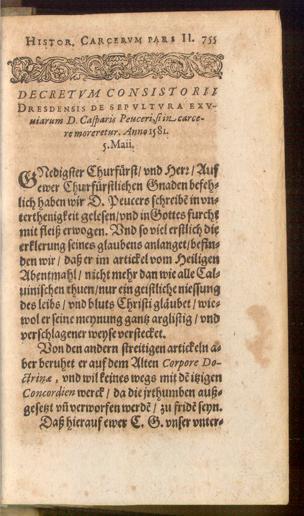 HISTOR. CARCERVM PARS II. 755
DECRETVM CONSISTORII
DRESDENSIS DE SEPVLTVRA EXV-
uiarum D. Casparis Peuceri, si in carce-
re moreretur. Anno 1581.
5. Maii.
GNedigster Churfürst/ vnd Herr/ Auf
ewer Churfürstlichen Gnaden befeh-
lich haben wir D. Peucers schreibē in vn-
terthenigkeit gelesen/vnd in Gottes furcht
mit fleiß erwogen. Vnd so viel erstlich die
erklerung seines glaubens anlanget/befin-
den wir/ daß er im artickel vom Heiligen
Abentmahl/ nicht mehr dan wie alle Cal-
uinischen thuen/nur ein geistliche niessung
des leibs/ vnd bluts Christi gläubet/ wie-
wol er seine meynung gantz arglistig/ vnd
verschlagener weyse verstecket.
Von den andern streitigen artickeln a-
ber beruhet er auf dem Alten Corpore Do-
ctrinæ, vnd wil keines wegs mit dē itzigen
Concordien werck/ da die irthumben auß-
gesetzt vn̄ verworfen werdē/ zu fridē seyn.
Daß hierauf ewer C. G. vnser vnter-